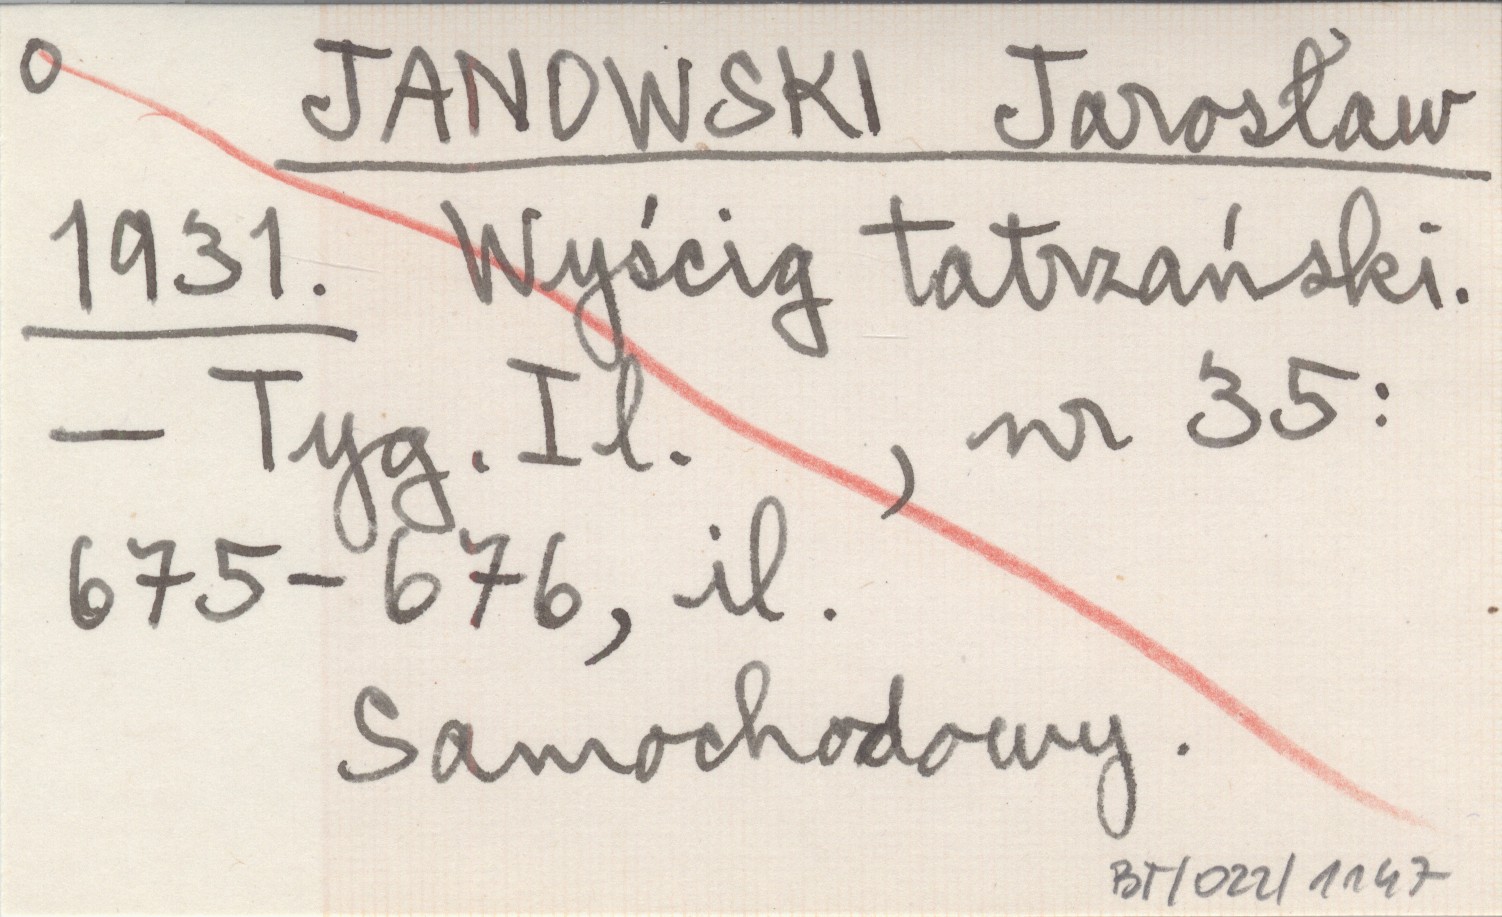 o JANOWSKI Jarosław
1931. Wyścig tatrzański.
— Tyg. Il. , nr 35:
675-676, il.
Samochodowy.
BT/022/1147